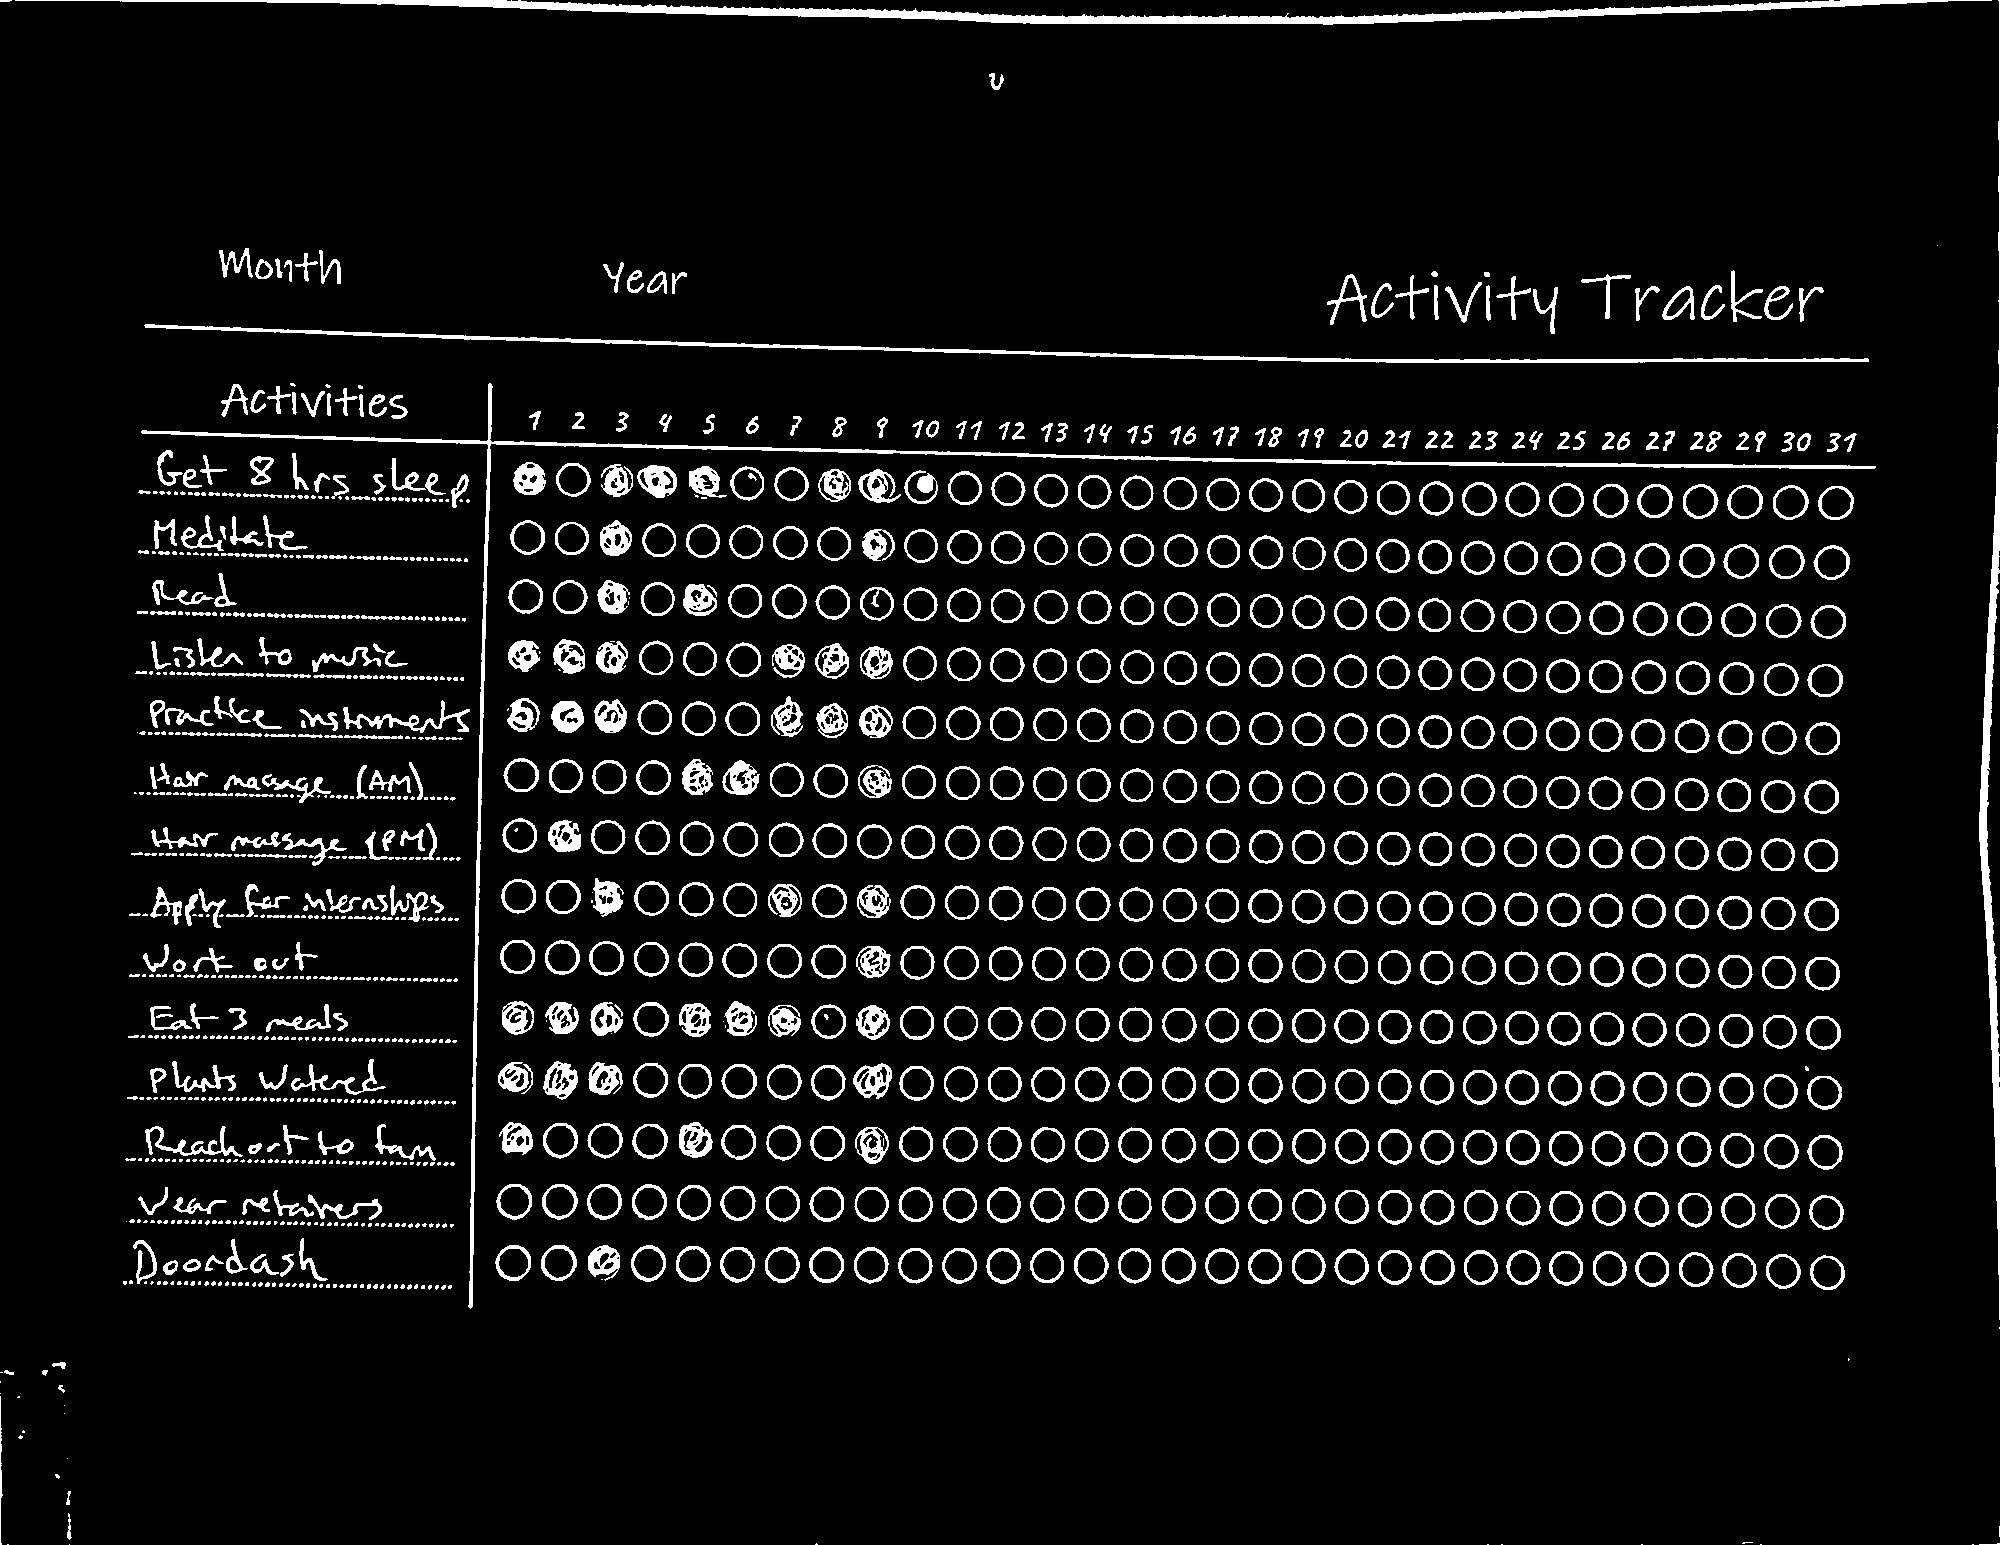 Month Year Activity Tracker
Activities 1 2 3 4 5 6 7 8 9 10 11 12 13 14 15 16 17 18 19 20 21 22 23 24 25 26 27 28 29 30 31
Get 8 hrs sleep
Meditate
Read
Listen to music
Practice instruments
Hair massage (AM)
Hair massage (PM)
Apply for internships
Work out
Eat 3 meals
Plants Watered
Reach out to fam
Wear retainers
Doordash